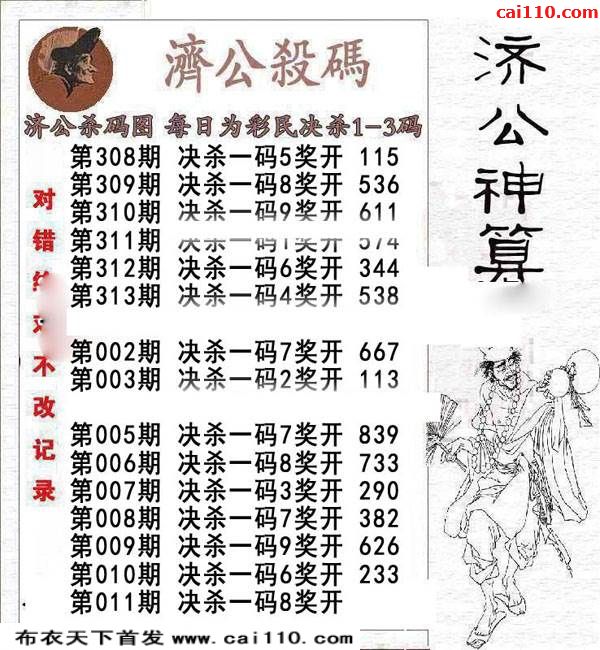 cai110.com
濟公殺碼
济公杀码图 每日为彩民决杀1-3码
第308期 决杀一码5奖开 115
第309期 决杀一码8奖开 536
第310期 决杀一码9奖开 611
第311期 决杀一码1奖开 574
第312期 决杀一码6奖开 344
第313期 决杀一码4奖开 538
第002期 决杀一码7奖开 667
第003期 决杀一码2奖开 113
第005期 决杀一码7奖开 839
第006期 决杀一码8奖开 733
第007期 决杀一码3奖开 290
第008期 决杀一码7奖开 382
第009期 决杀一码9奖开 626
第010期 决杀一码6奖开 233
第011期 决杀一码8奖开
对错
不改记录
济公神算
布衣天下首发 www.cai110.com